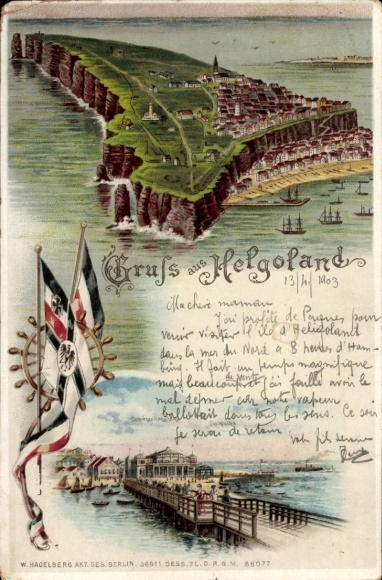 Gruss aus Helgoland
13/4/1903
Ma chère maman
J'ai profité de Pâques pour
venir visiter l'île d'Heligoland
dans la mer du Nord à 8 heures d'Ham-
burg. Il fait un temps magnifique
mais beaucoup de vent. J'ai failli avoir le
mal de mer car notre vapeur
ballottait dans tous les sens. Ce soir
je serai de retour.
ton fils
W. HAGELBERG AKT. GES. BERLIN. 36911 DESS. 7L. D. R. G. M. 88077